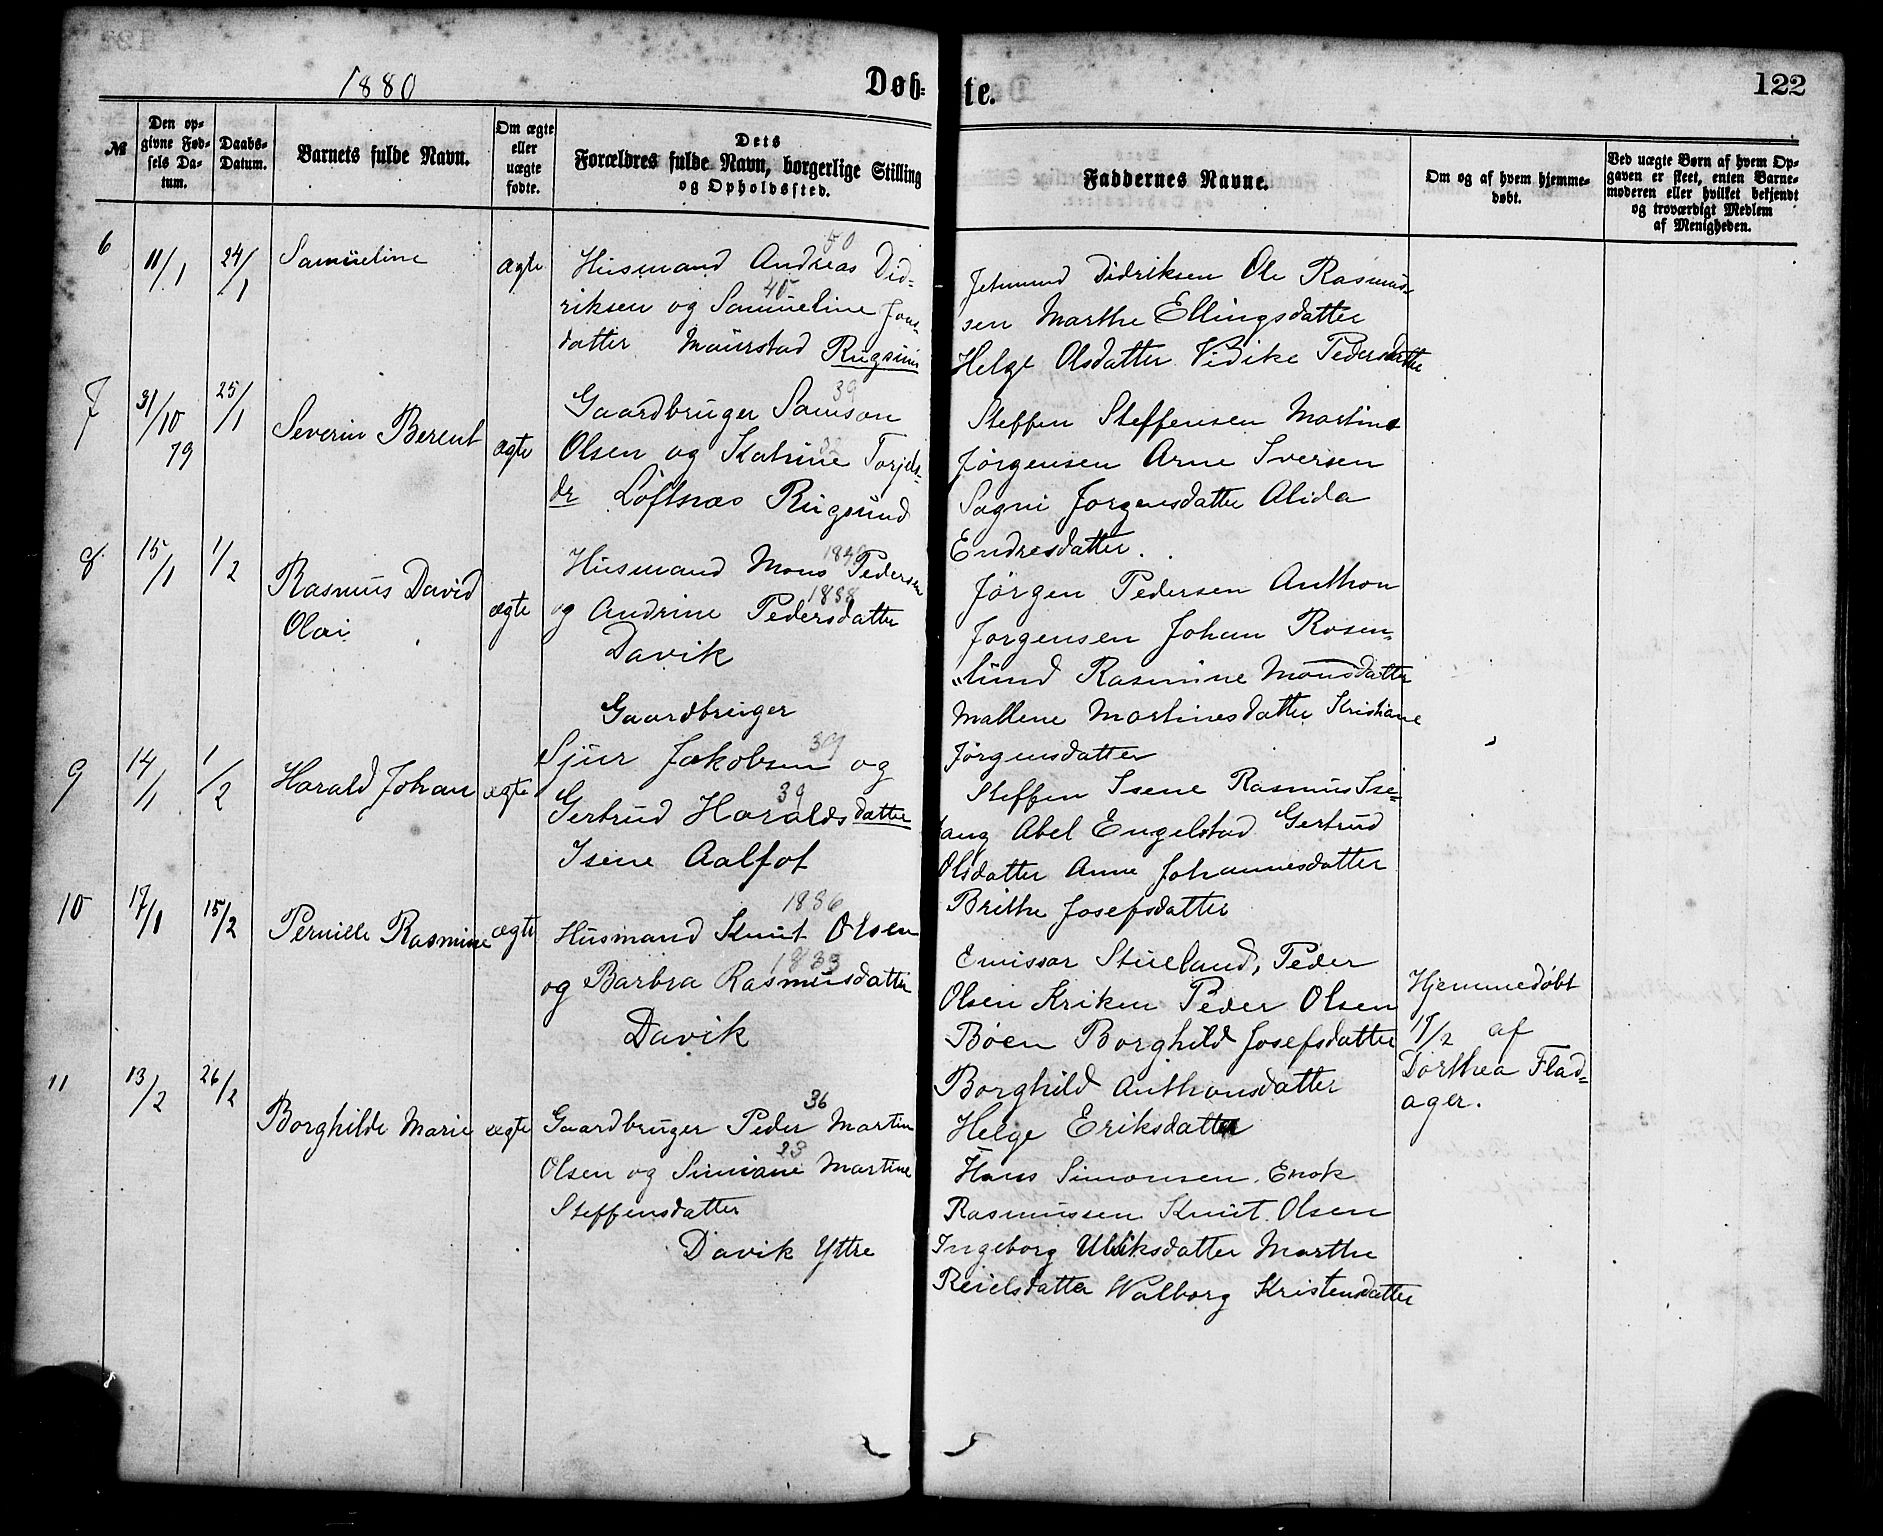 1880
Døb-
te.
122
№
Den op-
givne Fød-
sels Da-
tum.
Daabs-
Datum.
Barnets fulde Navn.
Om ægte
eller
uægte
fødte.
Dets
Forældres fulde Navn, borgerlige Stilling
og Opholdssted.
Faddernes Navne.
Om og af hvem hjemme-
døbt.
Ved uægte Børn af hvem Op-
gaven er skeet, enten Barne-
moderen eller hvilket bekjendt
og troværdigt Medlem
af Menigheden.
6
11/1
24/1
Samueline
ægte
50
Husmand Andreas Did-
45
riksen og Samueline Jons-
datter Maurstad Rugsund
Jetmund Didriksen Ole Rasmus-
sen Marthe Ellingsdatter
Helge Olsdatter Vidike Pedersdatter
7
31/10
79
25/1
Severin Berent
ægte
39
Gaardbruger Samson
32
Olsen og Katrine Torjels-
dr Löftnæs Rugsund
Steffen Steffensen Martinus
Jörgensen Arne Iversen
Sogni Jörgensdatter Alida
Endresdatter.
8
15/1
1/2
Rasmus David
Olai
ægte
1840
Husmand Mons Pedersen
1838
og Andrine Pedersdatter
Davik
Jörgen Pedersen Anthon
Jorgensen Johan Rosen-
lund Rasmine Monsdatter
Mallene Martinesdatter Kristiane
Jörgensdatter
9
14/1
1/2
Harald Johan
ægte
Gaardbruger
39
Sjur Jakobsen og
39
Gertrud Haraldsdatter
Isene Aalfot
Steffen Isene Rasmus Ise-
tang Abel Engelstad Gertrud
Olsdatter Anne Johannesdatter
Brithe Josefsdatter
10
17/1
15/2
Pernille Rasmine
ægte
1836
Husmand Knut Olsen
1833
og Barbra Rasmusdatter
Davik
Emissær Stueland, Peder
Olsen Kriken Peder Olsen
Bøen Borghild Josefsdatter
Borghild Anthonsdatter
Helge Eriksdatter
Hjemmedöbt
1/2 af
Dorthea Flad-
ager.
11
13/2
26/2
Borghilde Marie
ægte
36
Gaardbruger Peder Martin
23
Olsen og Simiane Martine
Steffensdatter
Davik Yttre
Hans Simonsen. Enok
Rasmussen Knut Olsen
Ingeborg Ulriksdatter Marthe
Reielsdatter Walborg Kristensdatter